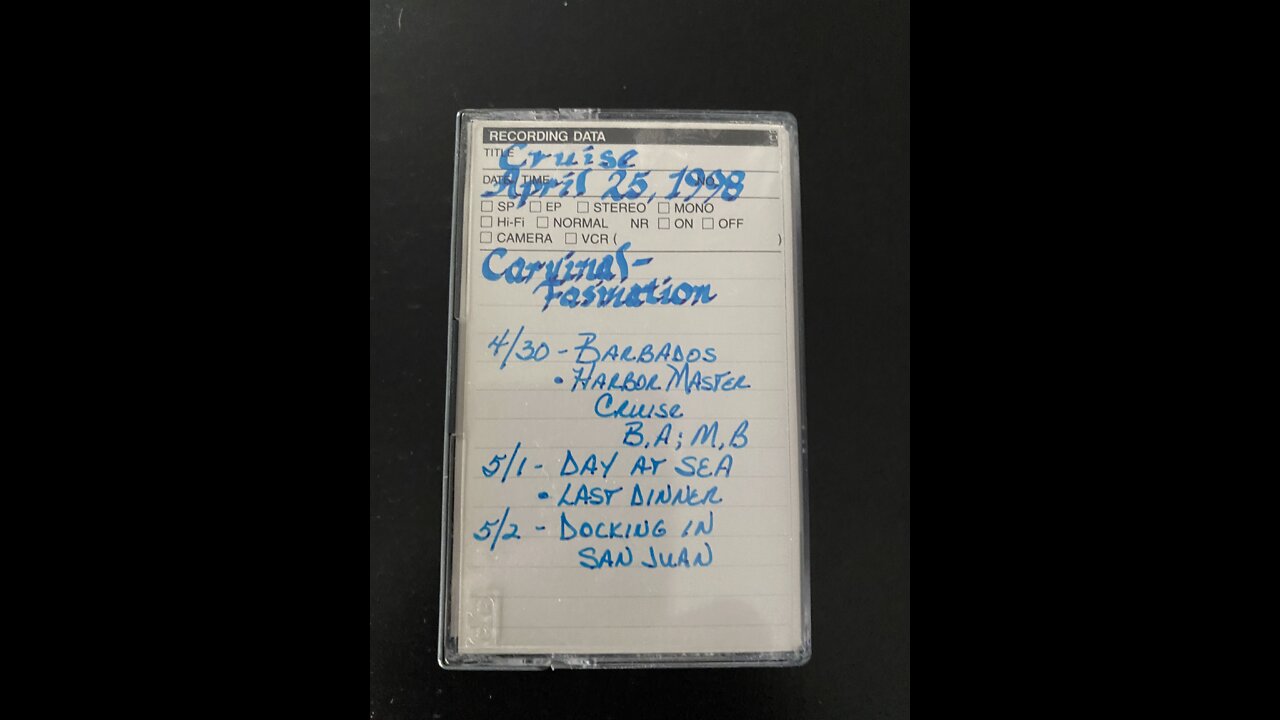 RECORDING DATA
TITLE Cruise
DATE TIME NO.
April 25, 1998
SP EP STEREO MONO
Hi-Fi NORMAL NR ON OFF
CAMERA VCR ( )
Carvinal-
Fasination
4/30 - BARBADOS
• HARBOR MASTER
CRUISE
B,A; M,B
5/1 - DAY AT SEA
• LAST DINNER
5/2 - DOCKING IN
SAN JUAN